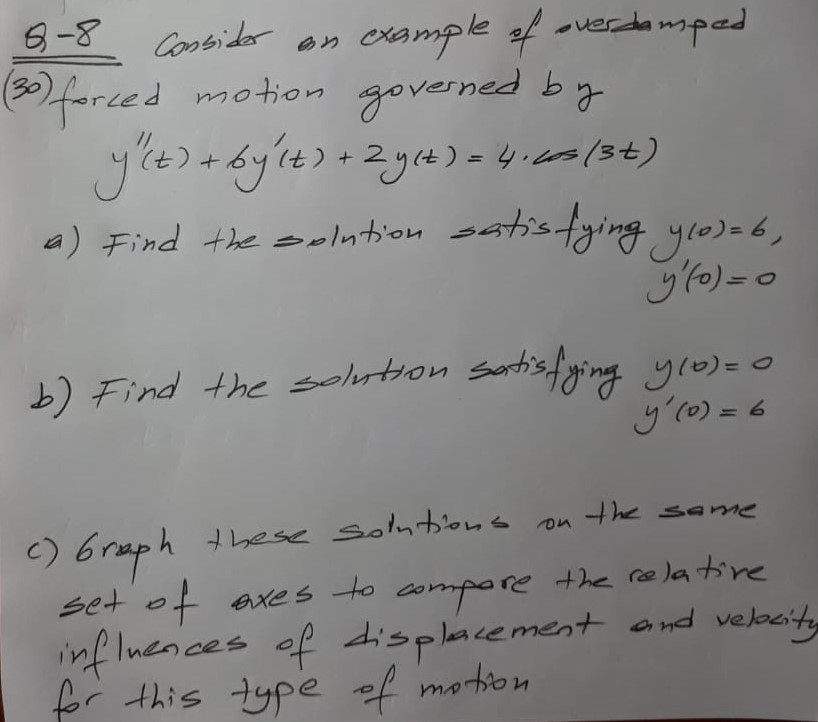 Q-8 Consider an example of overdamped
(30) forced motion governed by
y''(t) + 6y'(t) + 2y(t) = 4·cos(3t)
a) Find the solution satisfying y(0)=6,
y'(0)=0
b) Find the solution satisfying y(0)=0
y'(0)=6
c) Graph these solutions on the same
set of axes to compare the relative
influences of displacement and velocity
for this type of motion